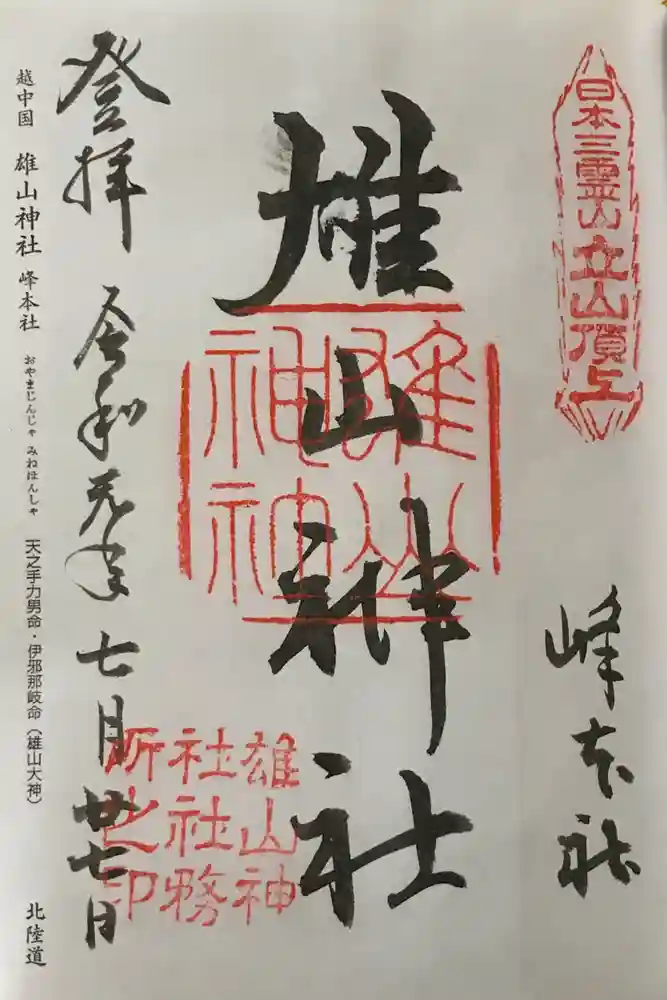 日本三霊山立山頂上
峰本社
雄山神社
雄山
神神
雄山神
社社務
所之印
登拝
令和元年七月廿七日
越中国 雄山神社 峰本社 おやまじんじゃ みねほんしゃ 天之手力男命・伊邪那岐命(雄山大神) 北陸道